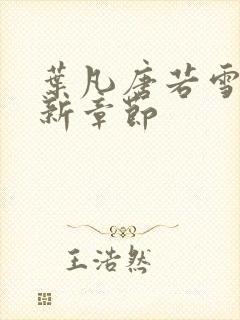 葉凡唐若雪
新章節
王浩然